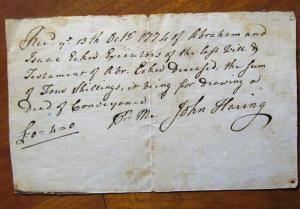 Recd. ye 13th Octr. 1774 of Abraham and
Isaac Ecker Executors of the last Will &
Testament of Abr. Ecker Deceased, the sum
of Four Shillings, it being for drawing a
deed of Conveyance
Pr. Me
John Haring
£0=4=0